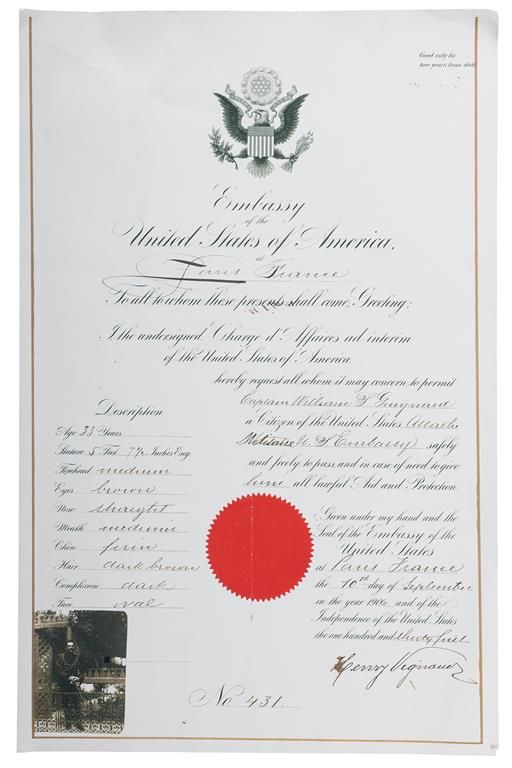 Good only for
two years from date
Embassy
of the
United States of America,
at
Paris France
To all to whom these presents shall come, Greeting:
I the undersigned, Chargé d'Affaires ad interim
of the United States of America,
hereby request all whom it may concern to permit
Captain William S Guignard
a Citizen of the United States, Attaché
Militaire U S Embassy safely
and freely to pass, and in case of need to give
him all lawful Aid and Protection.
Description
Age 33 Years
Stature 5 Feet 7½ Inches Eng.
Forehead medium
Eyes brown
Nose straight
Mouth medium
Chin firm
Hair dark brown
Complexion dark
Face oval
Given under my hand and the
Seal of the Embassy of the
United States
at Paris France
the 10th day of September
in the year 1906, and of the
Independence of the United States
the one hundred and thirty first
Henry Vignaud
No 431.